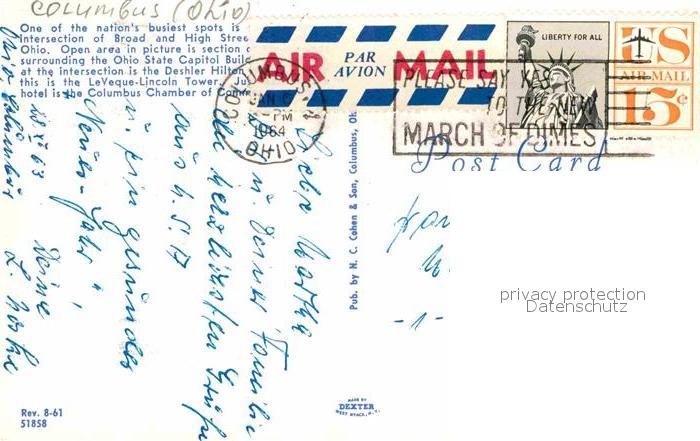 COLUMBUS (Ohio)
One of the nation's busiest spots is
intersection of Broad and High Stree
Ohio. Open area in picture is section o
surrounding the Ohio State Capitol Build
at the intersection is the Deshler Hilton
this is the LeVeque-Lincoln Tower. Jus
hotel is the Columbus Chamber of Comm
AIR PAR AVION MAIL
LIBERTY FOR ALL
US
AIR MAIL
15¢
COLUMBUS, OHIO
PM
1964
PLEASE SAY YES
TO THE NEW
MARCH OF DIMES
Post Card
Pub. by H. C. Cohen & Son, Columbus, Oh
Liebe Martha
u. Deiner Familie
die herzlichsten Grüße
aus U.S.A
u. ein gesundes
Neues Jahr
Deine
privacy protection
Datenschutz
- 1 -
MADE BY
DEXTER
WEST NYACK, N.Y.
Rev. 8-61
51858